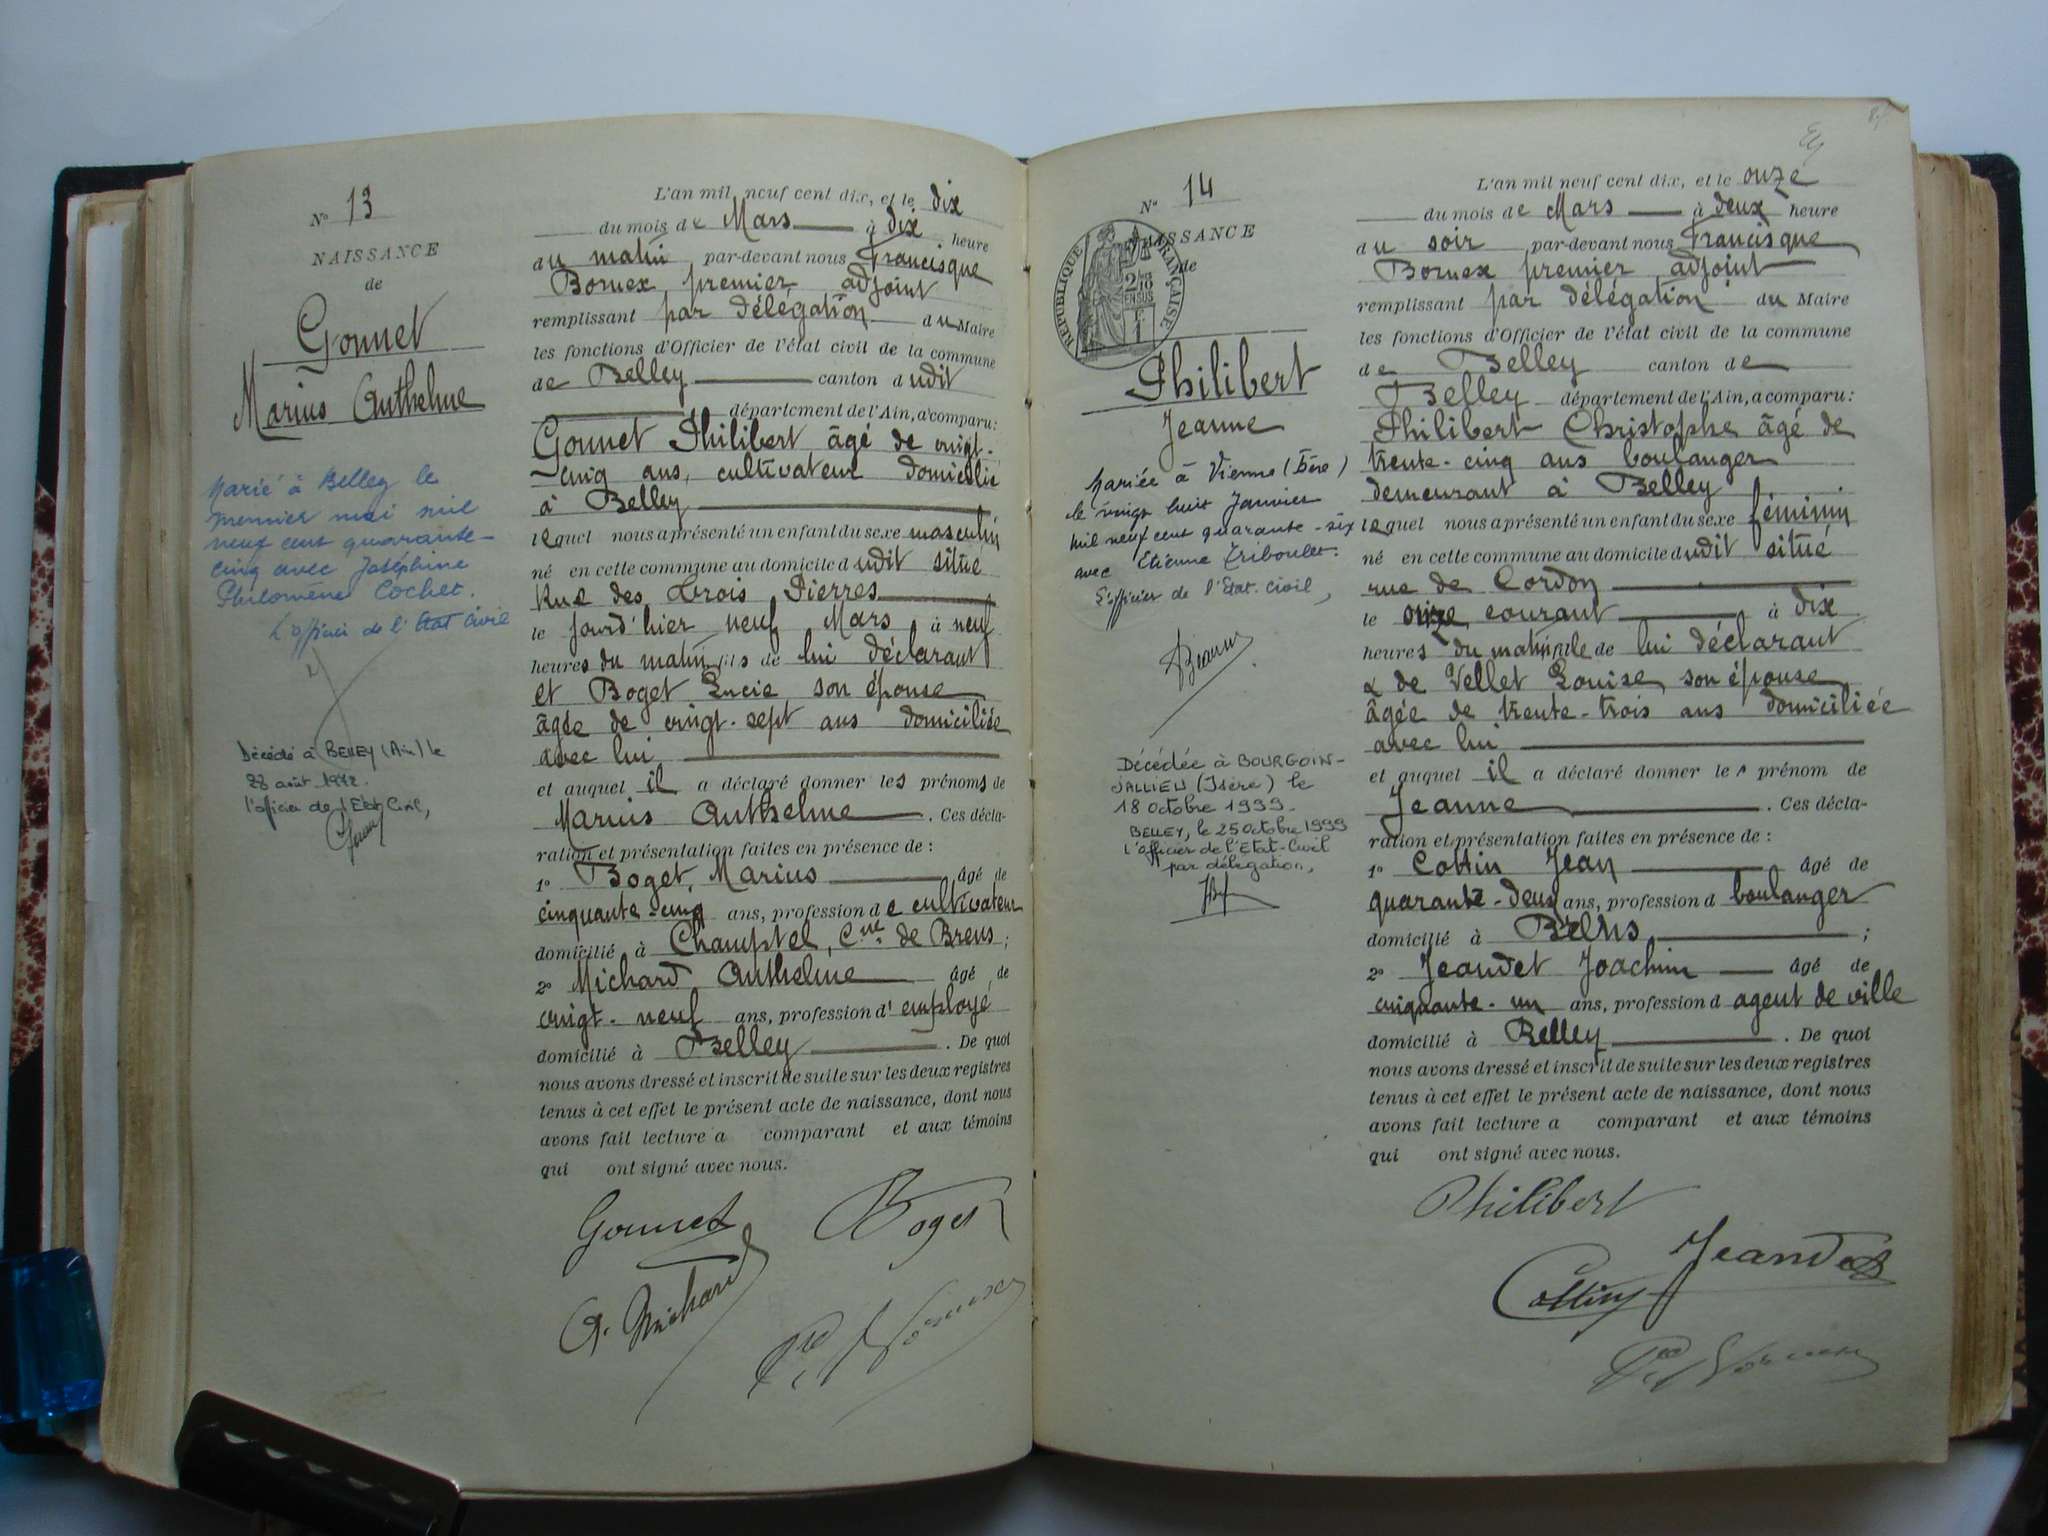 Nº 13
NAISSANCE
de
Gonnet
Marius Anthelme
Marié à Belley le
premier mai mil
neuf cent quarante-
cinq avec Joséphine
Philomène Cochet.
L'officier de l'Etat Civil
Décédé à BELLEY (Ain) le
l'officier de l'Etat Civil,
L'an mil neuf cent dix, et le dix
du mois de Mars à dix heure
du matin par-devant nous Francisque
Bornex premier adjoint
remplissant par délégation du Maire
les fonctions d'Officier de l'état civil de la commune
de Belley canton dudit
département de l'Ain, a comparu:
Gonnet Philibert âgé de vingt-
cinq ans, cultivateur domicilié
à Belley
lequel nous a présenté un enfant du sexe masculin
né en cette commune au domicile dudit situé
Rue des Trois Pierres
le jourd'hier neuf Mars à neuf
heures du matin fils de lui déclarant
et Boget Lucie son épouse
âgée de vingt-sept ans domiciliée
avec lui
et auquel il a déclaré donner les prénoms de
Marius Anthelme. Ces décla-
ration et présentation faites en présence de :
1º Boget, Marius âgé de
cinquante-cinq ans, profession de cultivateur
domicilié à Champtel, Cne de Brens;
2º Michard Anthelme âgé de
vingt-neuf ans, profession d'employé
domicilié à Belley. De quoi
nous avons dressé et inscrit de suite sur les deux registres
tenus à cet effet le présent acte de naissance, dont nous
avons fait lecture a comparant et aux témoins
qui ont signé avec nous.
Gonnet Boget
A. Michard
Bornex
Nº 14
NAISSANCE
de
RÉPUBLIQUE FRANÇAISE
Philibert
Jeanne
Mariée à Vienne (Isère)
le vingt huit Janvier
mil neuf cent quarante-six
avec Etienne Triboulet.
L'officier de l'Etat-civil,
Décédée à BOURGOIN-
JALLIEU (Isère) le
18 octobre 1999.
BELLEY, le 25 octobre 1999
L'officier de l'Etat-Civil
par délégation,
L'an mil neuf cent dix, et le onze
du mois de Mars à deux heure
du soir par-devant nous Francisque
Bornex premier adjoint
remplissant par délégation du Maire
les fonctions d'Officier de l'état civil de la commune
de Belley canton de
Belley département de l'Ain, a comparu:
Philibert Christophe âgé de
trente-cinq ans boulanger
demeurant à Belley
lequel nous a présenté un enfant du sexe féminin
né en cette commune au domicile dudit situé
rue de Cordon
le onze courant à dix
heures du matin fille de lui déclarant
& de Vellet Louise son épouse
âgée de trente-trois ans domiciliée
avec lui
et auquel il a déclaré donner le prénom de
Jeanne. Ces décla-
ration et présentation faites en présence de :
1º Cottin Jean âgé de
quarante-deux ans, profession d boulanger
domicilié à ;
2º Jeandet Joachim âgé de
cinquante-un ans, profession d agent de ville
domicilié à Belley. De quoi
nous avons dressé et inscrit de suite sur les deux registres
tenus à cet effet le présent acte de naissance, dont nous
avons fait lecture a comparant et aux témoins
qui ont signé avec nous.
Philibert
Jeandet
Cottin
Bornex